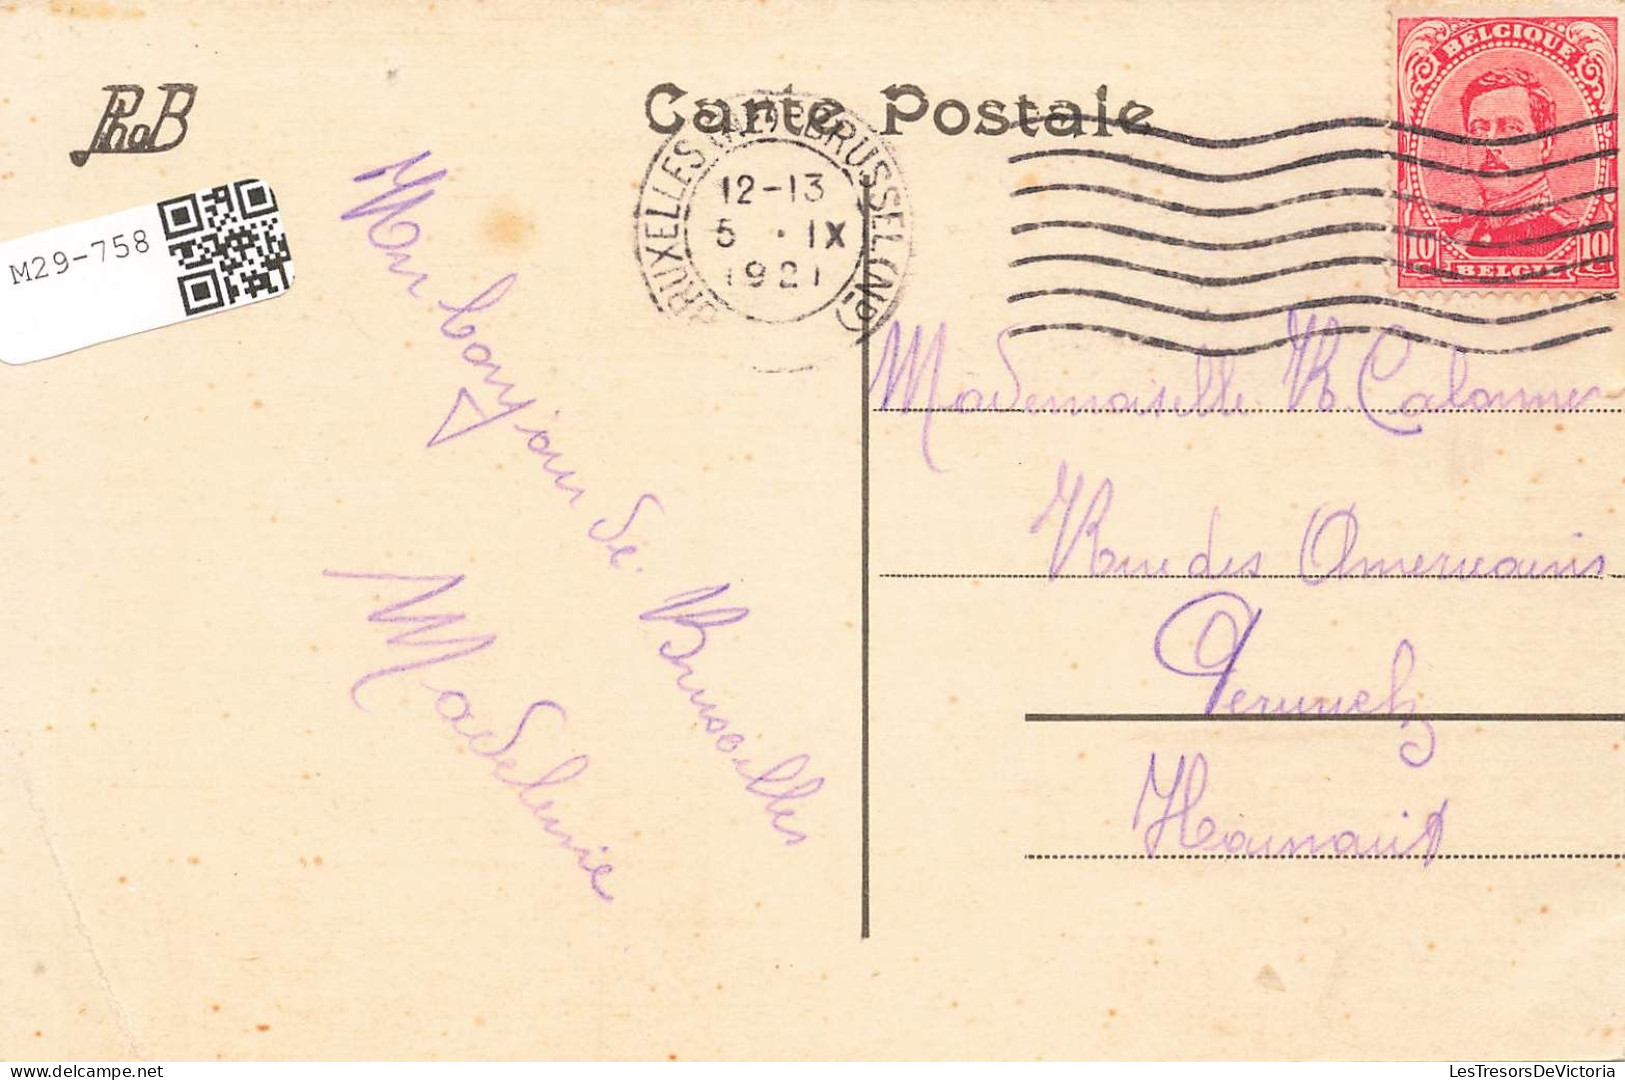 PhoB
Carte Postale
BELGIQUE
10 10
BELGIË
BRUXELLES (NORD) BRUSSEL (ND)
12-13
5 . IX
1921
M29-758
Un bonjour de
Bruxelles
Madeleine
Mademoiselle R. Calonne
Rue des Americains
Peruwelz
Hainaut
LesTresorsDeVictoria